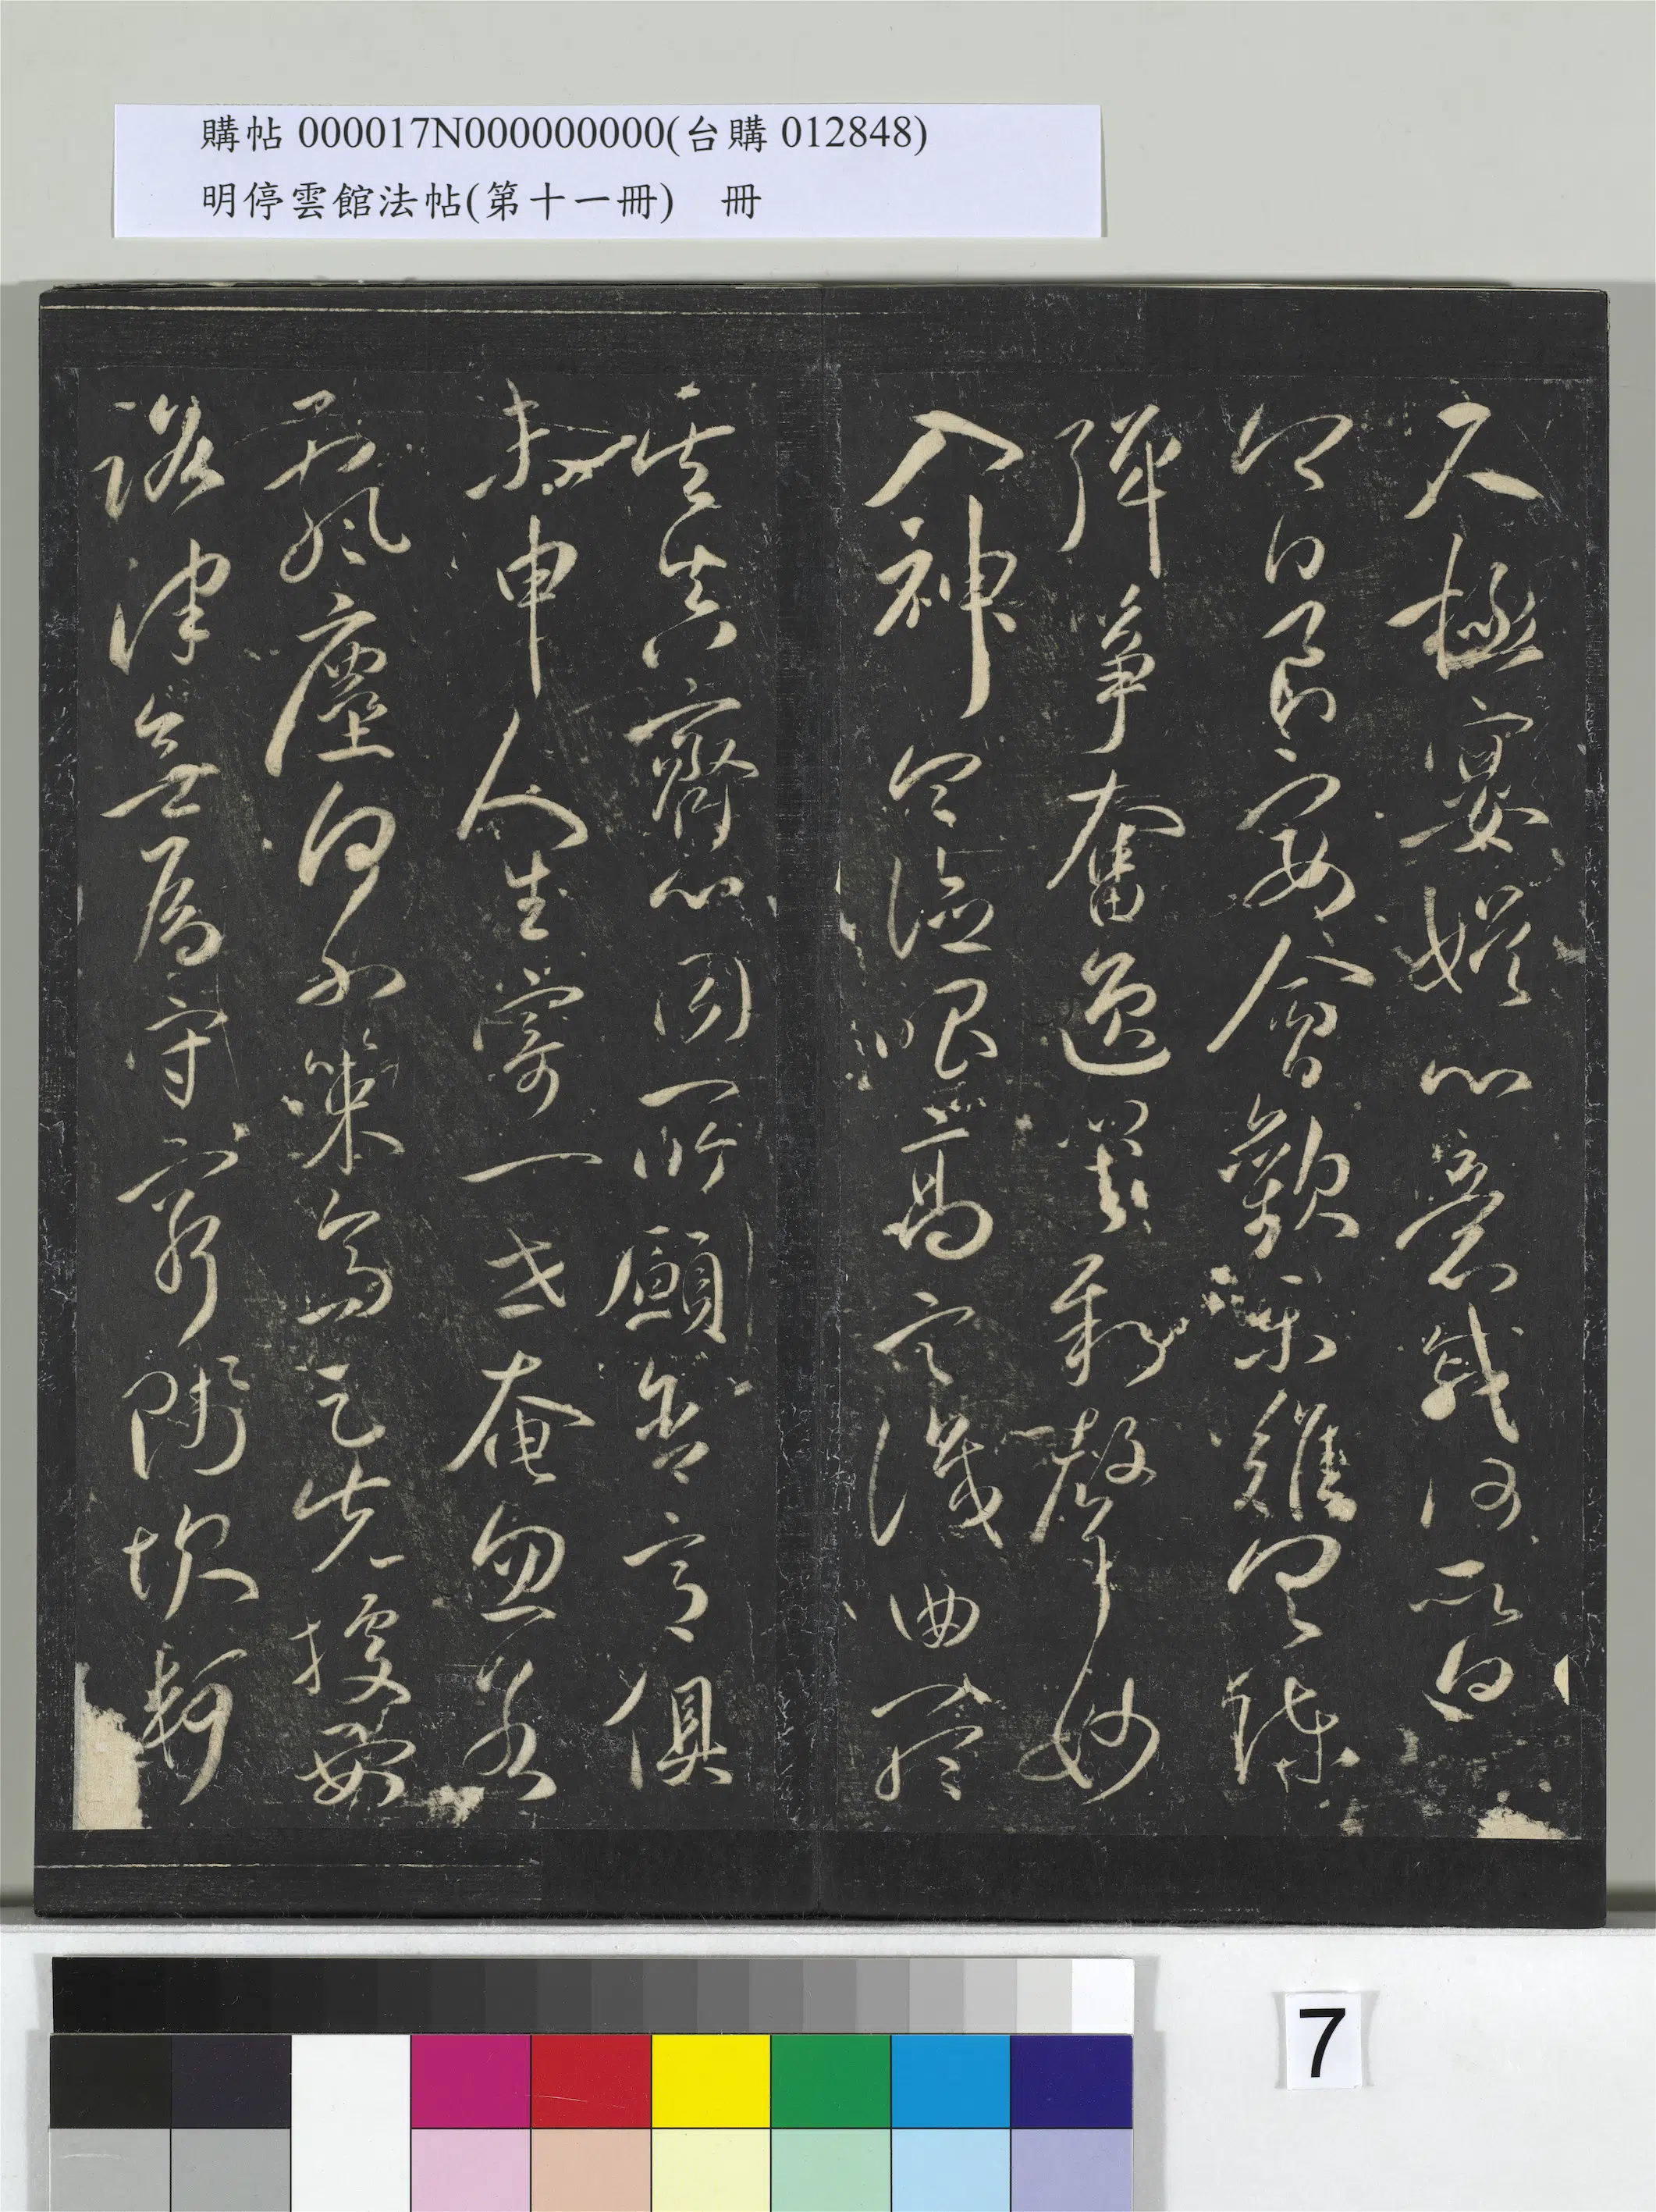 購帖 000017N000000000(台購 012848)
明停雲館法帖(第十一冊) 冊
尺極宴娛心意戚何所迫
今日良宴會歡樂難具陳
彈箏奮逸響新聲妙
入神令德唱高言識曲聽
其真齊心同所願含意俱
未申人生寄一世奄忽若
飆塵何不策高足先據要
路津無為守窮賤坎軻
7